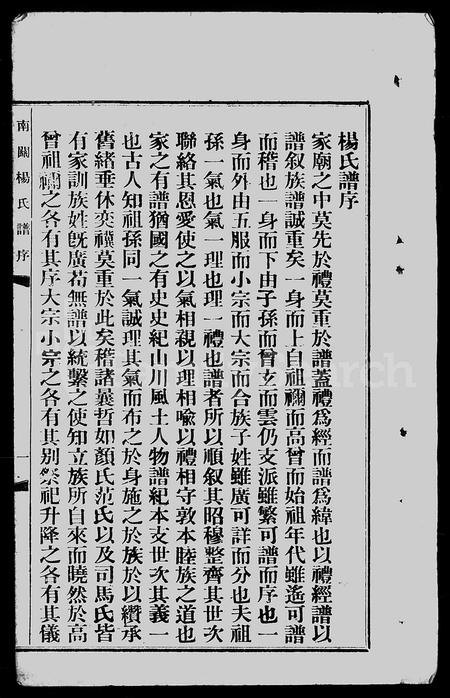 楊氏譜序
家廟之中莫先於禮莫重於譜蓋禮爲經而譜爲緯也以禮經譜以
譜叙族譜誠重矣一身而上自祖禰而高曾而始祖年代雖遙可譜
而稽也一身而下由子孫而曾玄而雲仍支派雖繁可譜而序也一
身而外由五服而小宗而大宗而合族子姓雖廣可詳而分也夫祖
孫一氣也氣一理也理一禮也譜者所以順叙其昭穆整齊其世次
聯絡其恩愛使之以氣相親以理相喻以禮相守敦本睦族之道也
家之有譜猶國之有史史紀山川風土人物譜紀本支世次其義一
也古人知祖孫同一氣誠理其氣而布之於身施之於族於以纘承
舊緒垂休奕禩莫重於此矣稽諸曩哲如顏氏范氏以及司馬氏皆
有家訓族姓旣廣苟無譜以統繫之使知立族所自來而曉然於高
曾祖禰之各有其序大宗小宗之各有其別祭祀升降之各有其儀
南關楊氏譜序
一